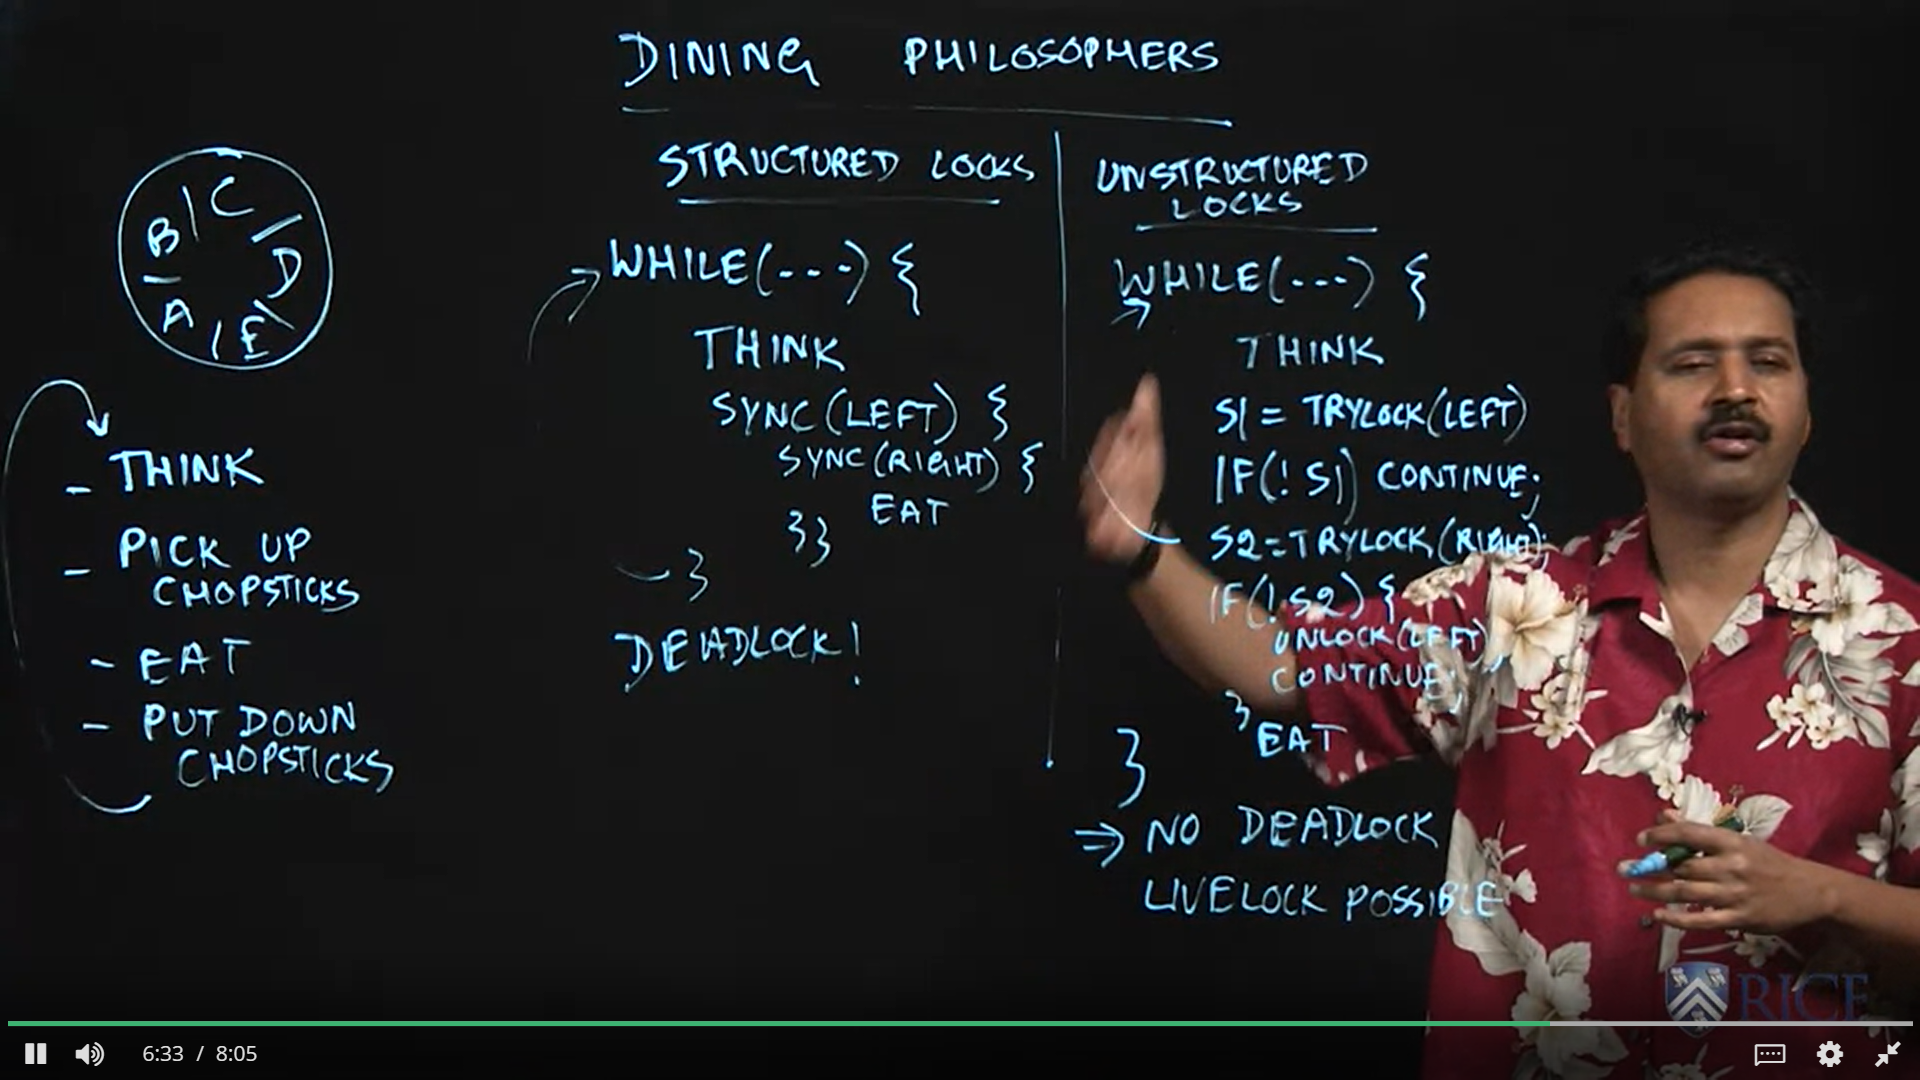 DINING PHILOSOPHERS
B C
D
A E
- THINK
- PICK UP
CHOPSTICKS
- EAT
- PUT DOWN
CHOPSTICKS
STRUCTURED LOCKS
WHILE(---) {
THINK
SYNC(LEFT) {
SYNC(RIGHT) {
EAT
}}
}
DEADLOCK!
UNSTRUCTURED
LOCKS
WHILE(---) {
THINK
S1 = TRYLOCK(LEFT)
IF(! S1) CONTINUE;
S2=TRYLOCK(RIGHT);
IF(! S2) {
UNLOCK(LEFT);
CONTINUE;
}
EAT
}
⇒ NO DEADLOCK
LIVELOCK POSSIBLE
RICE
6:33 / 8:05